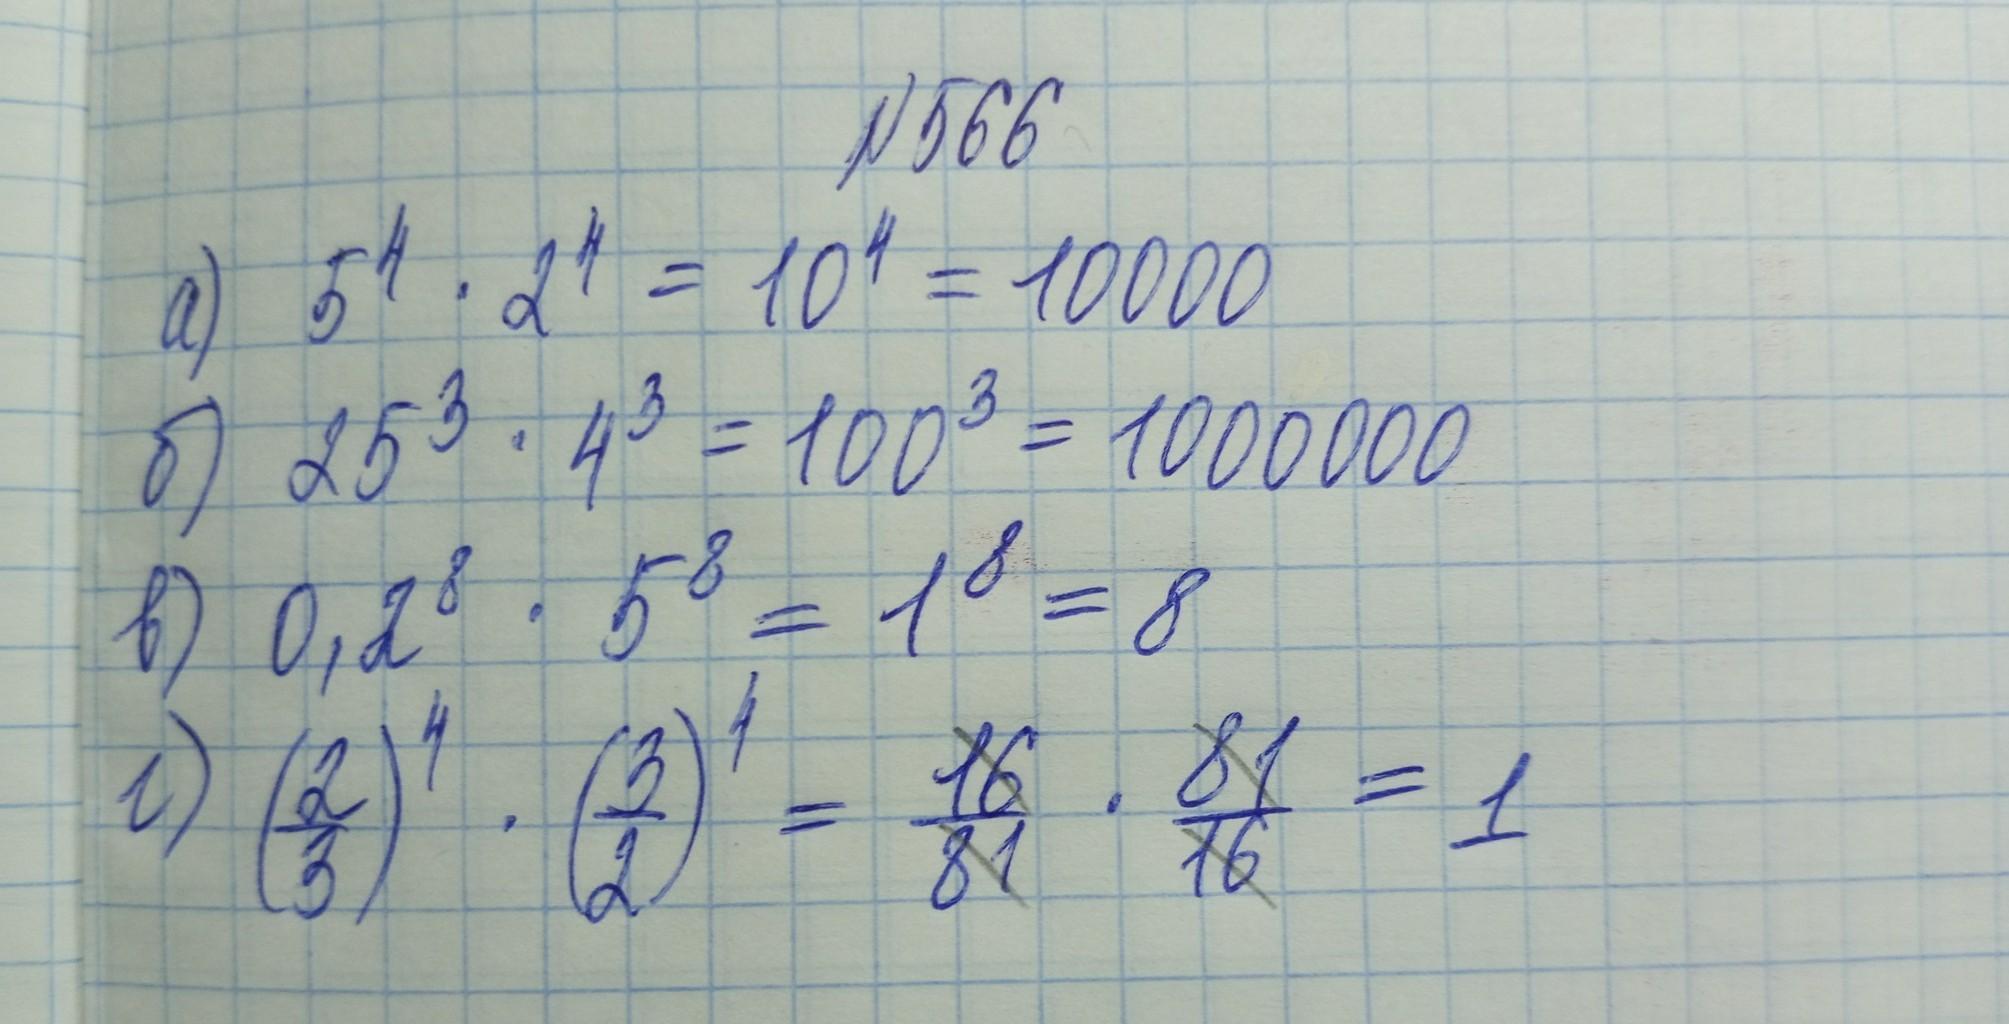 №566
а) 5⁴ · 2⁴ = 10⁴ = 10000
б) 25³ · 4³ = 100³ = 1000000
в) 0,2⁸ · 5⁸ = 1⁸ = 8
г) (2/3)⁴ · (3/2)⁴ = 16/81 · 81/16 = 1